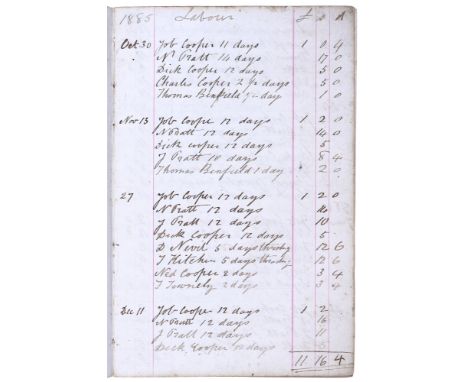 1885 Labour £ s d
Oct 30 Job Cooper 11 days 1 0 4
N Pratt 14 days 17 0
Dick Cooper 12 days 5 0
Charles Cooper 2 days 5 0
Thomas Benfield day 1 0
Nov 13 Job Cooper 12 days 1 2 0
N Pratt 12 days 14 0
Dick Cooper 12 days 5
J Pratt 10 days 8 4
Thomas Benfield 1 day 2 0
27 Job Cooper 12 days 1 2 0
N Pratt 12 days 16
J Pratt 12 days 10
Dick Cooper 12 days 5
D Neve 5 days 12 6
J Kitchen 5 days 12 6
Ned Cooper 2 days 3 4
J 2 days 3 4
Dec 11 Job Cooper 12 days 1 2
N Pratt 12 days 16
J Pratt 12 days 11
Dick Cooper days 5
11 16 4